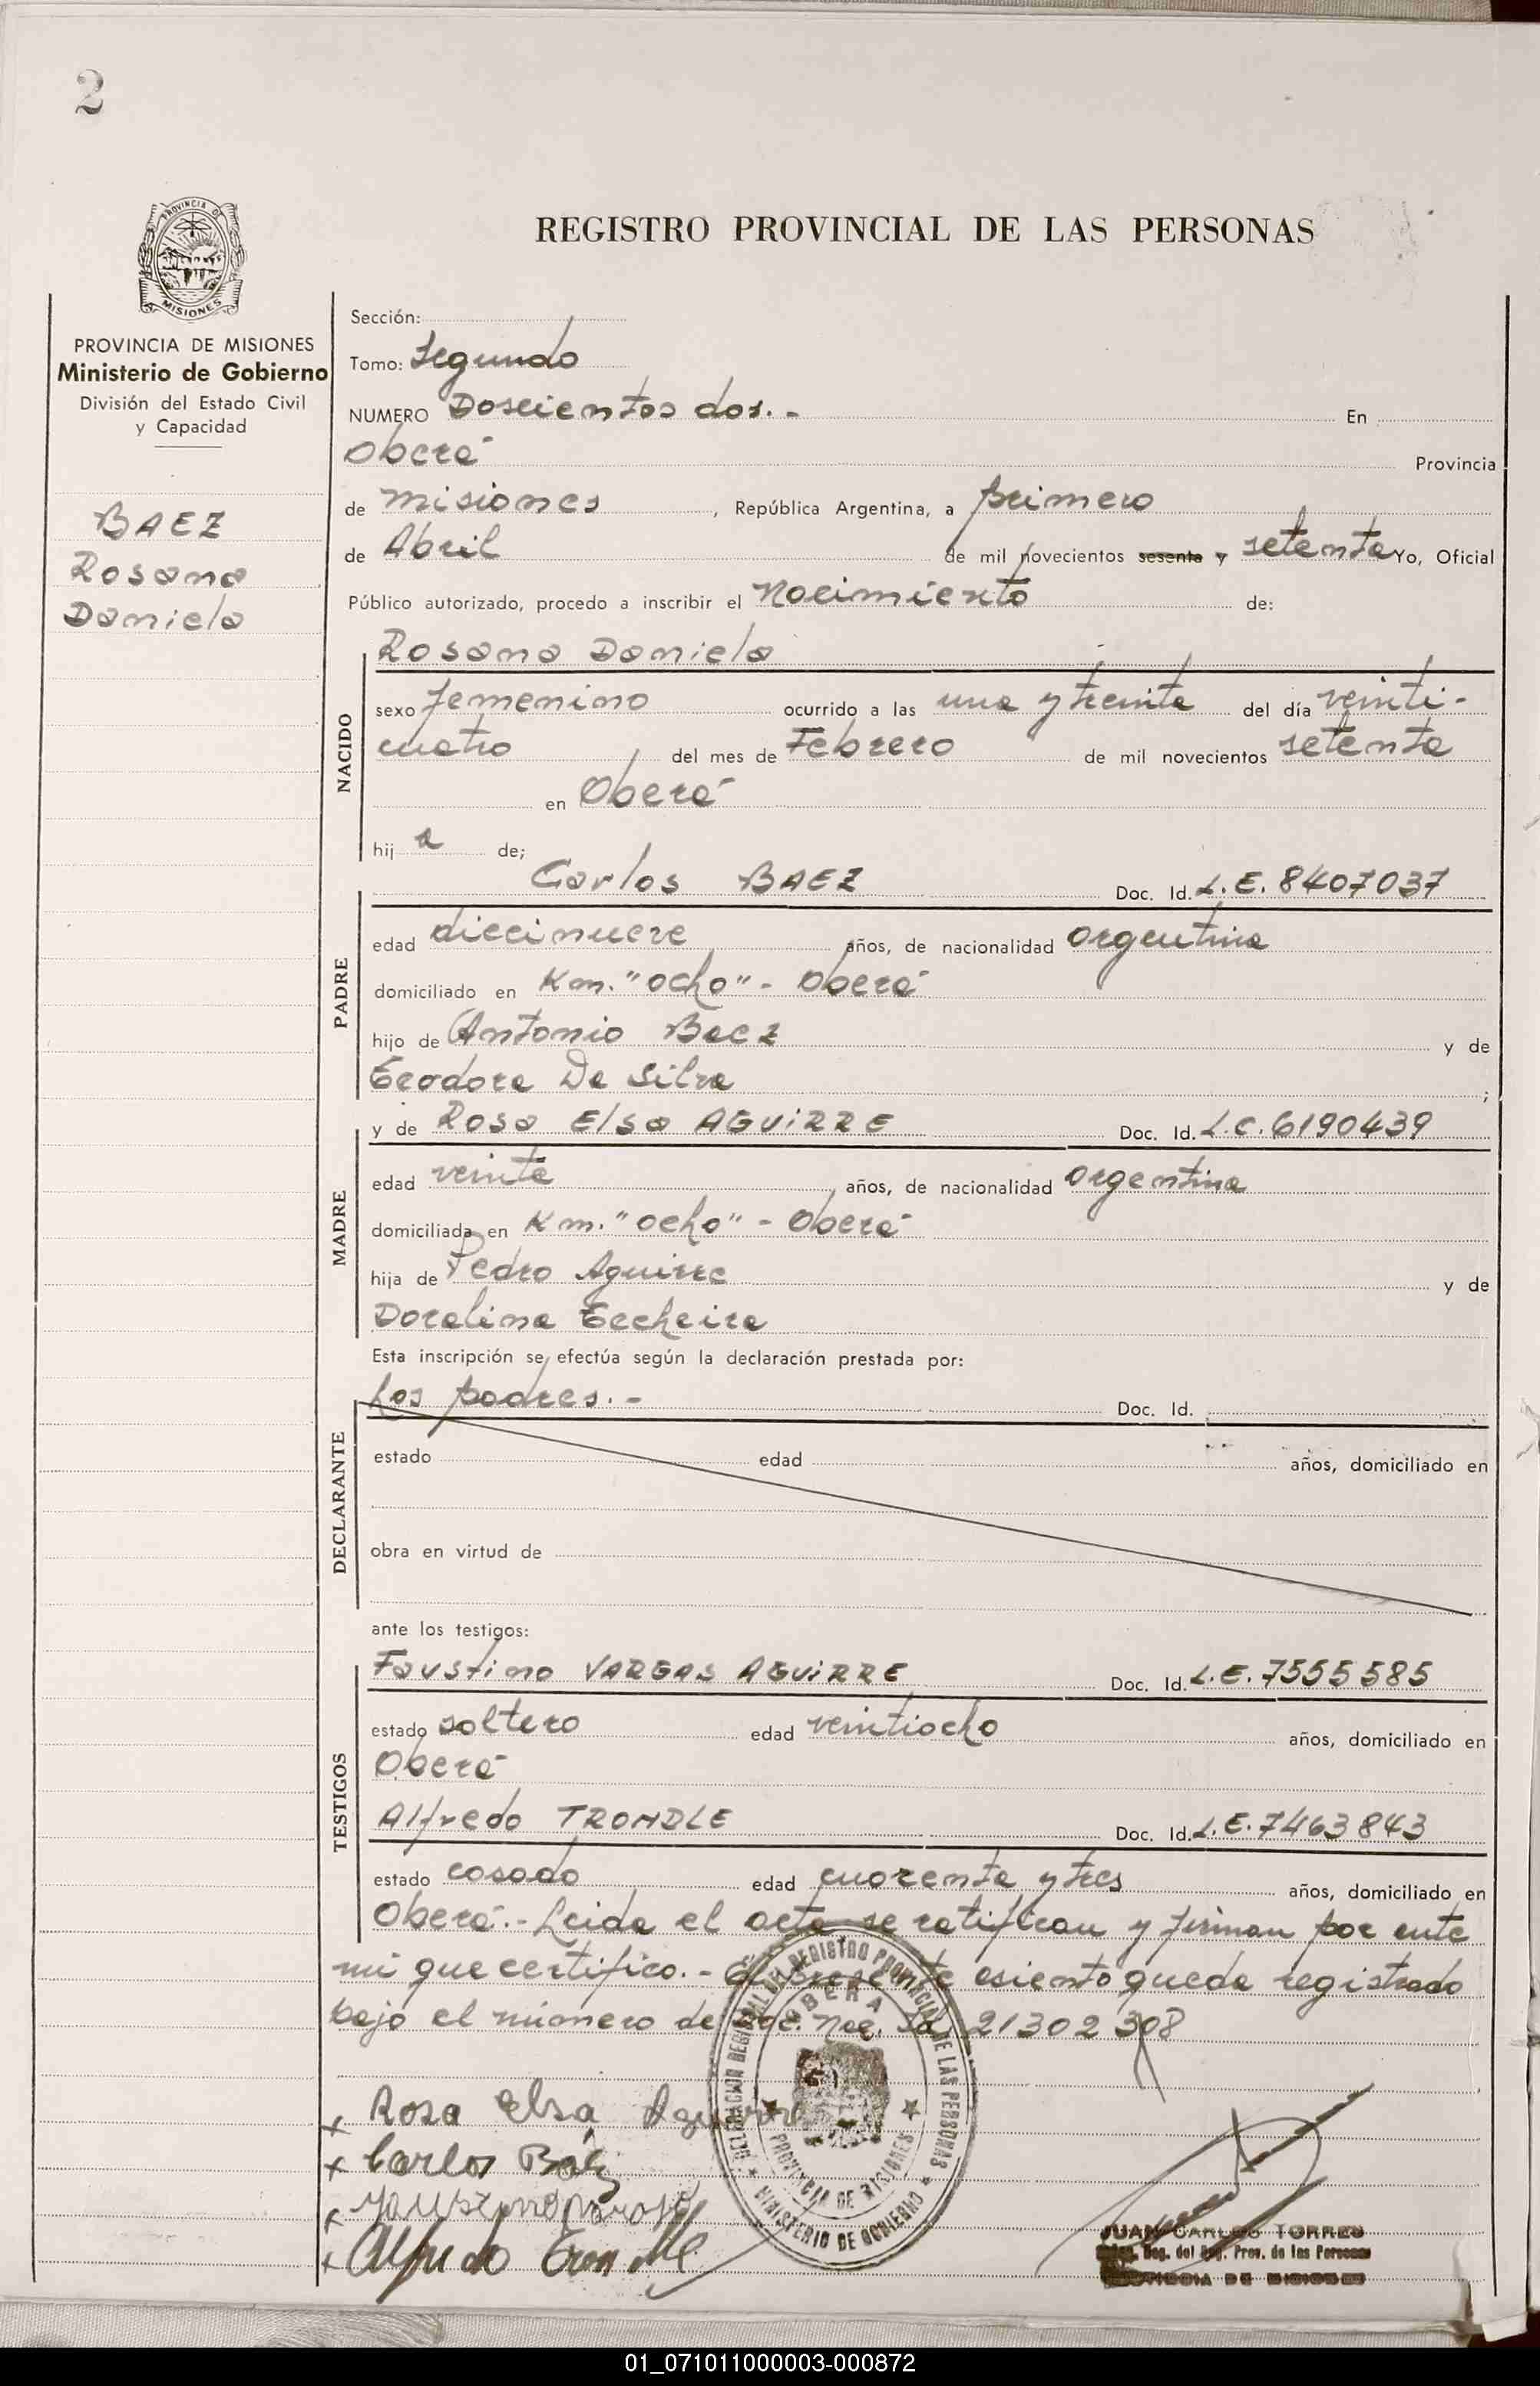 2
PROVINCIA DE
MISIONES
REGISTRO PROVINCIAL DE LAS PERSONAS
PROVINCIA DE MISIONES
Ministerio de Gobierno
División del Estado Civil
y Capacidad
BAEZ
Rosana
Daniela
Sección:
Tomo: Segundo
NUMERO Doscientos dos.- En
Oberá Provincia
de Misiones, República Argentina, a primero
de Abril de mil novecientos sesenta y setenta Yo, Oficial
Público autorizado, procedo a inscribir el Nacimiento de:
Rosana Daniela
NACIDO
sexo femenino ocurrido a las una y treinta del día veinti-
cuatro del mes de Febrero de mil novecientos setenta
en Oberá
hija de;
Carlos BAEZ Doc. Id. L.E. 8407037
PADRE
edad diecinueve años, de nacionalidad argentina
domiciliado en Km. "ocho" - Oberá
hijo de Antonio Baez y de
Teodora Da Silva ;
y de Rosa Elsa AGUIRRE Doc. Id. L.C. 6190439
MADRE
edad veinte años, de nacionalidad argentina
domiciliada en Km. "ocho" - Oberá
hija de Pedro Aguirre y de
Doralina Techeira
Esta inscripción se efectúa según la declaración prestada por:
Los padres.- Doc. Id.
DECLARANTE
estado edad años, domiciliado en
obra en virtud de
ante los testigos:
Faustino VARGAS AGUIRRE Doc. Id. L.E. 7555585
TESTIGOS
estado soltero edad veintiocho años, domiciliado en
Oberá
Alfredo TRONDLE Doc. Id. L.E. 7463843
estado casado edad cuarenta y tres años, domiciliado en
Oberá.- Leida el acta se ratifican y firman por ante
mi que certifico.- El presente asiento queda registrado
bajo el número de Doc. Nac. Id. 21302308
DELEGACION REGIONAL DEL REGISTRO PROVINCIAL DE LAS PERSONAS
OBERA
PROVINCIA DE MISIONES
MINISTERIO DE GOBIERNO
x Rosa Elsa Aguirre
x Carlos Báez
x Faustino
x Alfredo Trondle
JUAN CARLOS TORRES
Deg. del Reg. Prov. de las Personas
PROVINCIA DE MISIONES
01_071011000003-000872